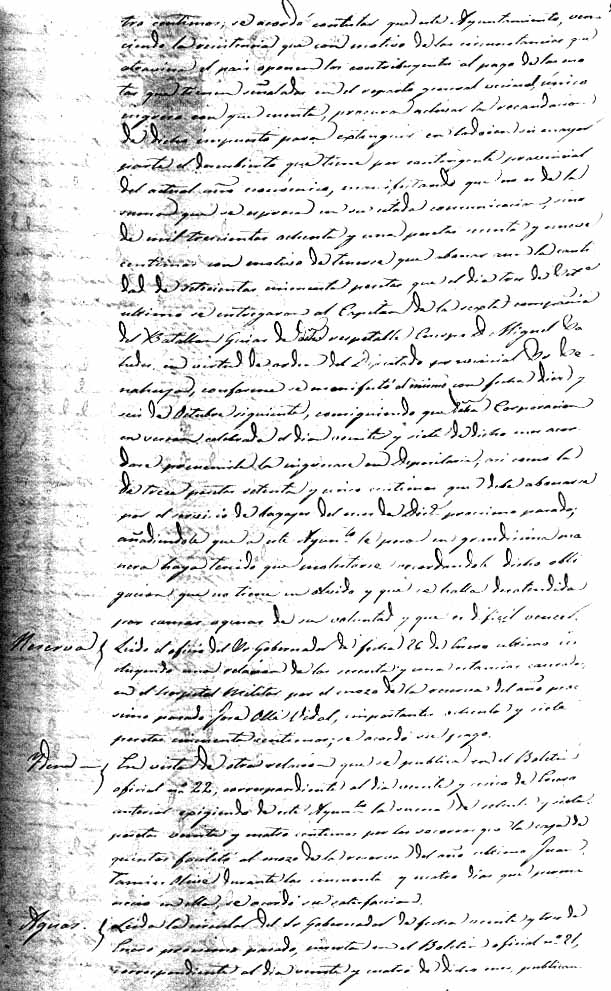 tro centimos, se acordó contestar que este Ayuntamiento, ven-
ciendo la resistencia que con motivo de las circunstancias que
atraviesa el pais oponen los contribuyentes al pago de las cuo
tas que tienen señaladas en el reparto general vecinal, único
ingreso con que cuenta, procura activar la recaudacion
de dicho impuesto para extinguir en todo ó en su mayor
parte el descubierto que tiene por contingente provincial
del actual año económico, manifestando que no es de la
suma que se espresa en su citada comunicacion, sino
de mil trescientas ochenta y una pesetas sesenta y nueve
centimos con motivo de tenerse que abonar la canti
dad de setecientas cincuenta pesetas que el dia tres de
ultimo se entregaron al Capitan de la sexta compañia
del Batallon Guias de este respetable Cuerpo D. Miguel
en virtud de orden del Diputado provincial Sr.
conforme se manifestó al mismo con fecha diez y
seis de Octubre siguiente, consiguiendo que dicha Corporacion
en sesion celebrada el dia veinte y siete de dicho mes acor
dara la ingresara en Depositaria, asi como la
de trece pesetas setenta y cinco centimos que debe abonarse
por el servicio de bagajes del mes de Dicre. proximo pasado;
añadiendole que a este Ayunto. le pesa en grandisima ma
nera haya tenido que molestarse recordandole dicha obli
gacion que no tiene en olvido y que se halla desatendida
por causas agenas de su voluntad y que es dificil vencer.
Reserva } Leido el oficio del Sr. Gobernador de fecha 26 de Enero ultimo in
cluyendo una relacion de las sesenta y una estancias causadas
en el Hospital Militar por el mozo de la reserva del año pro
ximo pasado José Ollé Vidal, importantes ochenta y siete
pesetas cincuenta centimos, se acordó su pago.
Idem } En vista de otra relacion que se publica en el Boletin
oficial nº 22, correspondiente al dia veinte y cinco de Enero
anterior exigiendo de este Ayunto. la suma de ochenta y siete
pesetas veinte y cuatro centimos por los socorros que la caja de
quintos facilitó al mozo de la reserva del año ultimo Juan
durante los cincuenta y cuatro dias que perma
neció en ella, se acordó su satisfaccion.
Aguas. } Leida la circular del Sr. Gobernador de fecha veinte y tres de
Enero proximo pasado, inserta en el Boletin oficial nº 21,
correspondiente al dia veinte y cuatro de dicho mes, publican